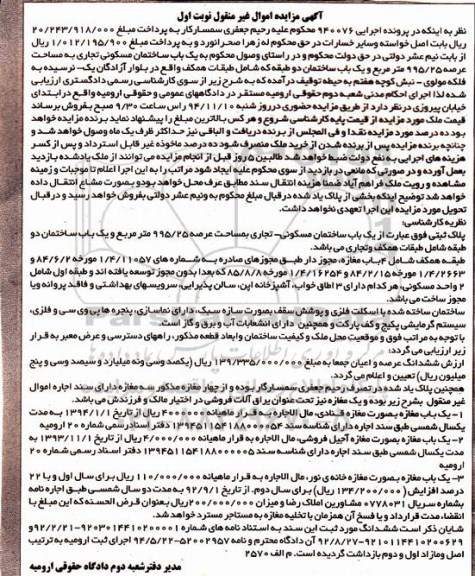 آگهی مزایده اموال غیر منقول نوبت اول
نظر به اینکه در پرونده اجرایی 940076 محکوم علیه رحیم جعفری سمسارکار به پرداخت مبلغ 20/243/918/000
ریال بابت اصل خواسته و سایر خسارات در حق محکوم له زهرا صحرانورد و به پرداخت مبلغ 1/012/195/900 ریال
از بابت نیم عشر دولتی در حق دولت محکوم و در راستای وصول محکوم به یک باب ساختمان مسکونی تجاری به مساحت
عرصه 995/25 متر مربع و یک باب ساختمان دو طبقه که شامل طبقات همکف واقع در بلوار آزادگان یک- نرسیده به
فلکه مولوی - نبش کوچه هفتم به حیطه توقیف درآمده که به شرح زیر از سوی کارشناسی رسمی دادگستری ارزیابی
شده لذا اجرای احکام مدنی شعبه دوم حقوقی ارومیه مستقر در دادگاههای عمومی و حقوقی ارومیه واقع در ابتدای
خیابان پیروزی در نظر دارد از طریق مزایده حضوری در روز شنبه 94/11/10 راس ساعت 9/30 صبح بفروش برساند
قیمت ملک مورد از مزایده از قیمت پایه کارشناسی شروع و هر کس بالاترین مبلغ را پیشنهاد نماید برنده مزایده خواهد
بود ده درصد مورد مزایده نقدا و فی المجلس از برنده دریافت و الباقی نیز حداکثر ظرف یک ماه وصول خواهد شد و
چنانچه برنده مزایده پس از برنده شدن از خرید ملک منصرف شود ده درصد ماخوذه غیر قابل استرداد و پس از کسر
هزینه های اجرایی به نفع دولت ضبط خواهد شد طالبین 5 روز قبل از انجام مزایده می توانند از ملک یاد شده بازدید
بعمل آورده و در صورتی که مانعی در بازدید از سوی محکوم علیه ایجاد شود مراتب را به این اجرا اعلام تا موجبات و زمینه
مشاهده و رویت ملک فراهم آید ضمنا هزینه انتقال سند مطابق عرف محل خواهد بود و بصورت مشاع انتقال داده
خواهد شد توضیح اینکه بخشی از پلاک یاد شده در قبال مبلغ محکوم به و نیم عشر دولتی بفروش خواهد رسید و در قبال
تحویل مورد مزایده این اجرا تعهدی نخواهد داشت.
نظریه کارشناسی:
پلاک ثبتی فوق عبارت از یک باب ساختمان مسکونی- تجاری بمساحت عرصه 995/25 متر مربع و یک باب ساختمان دو
طبقه شامل طبقات همکف و تجاری می باشد.
طبقه همکف شامل 4 باب مغازه، مجوز دار طبق مجوزهای صادره به شماره های 1/4/11057 مورخه 84/6/2 و
1/4/2662 مورخه 84/2/15 و 1/4/16254 مورخه 85/8/8 که بعدا بدون مجوز توسعه یافته اند و طبقه اول شامل
2 واحد مسکونی، هر کدام دارای 3 اطاق خواب، آشپزخانه اپن، سالن پذیرایی، سرویسهای بهداشتی و فاقد پروانه و یا
مجوز ساخت می باشد.
ساختمان ساخته شده با اسکلت فلزی و پوشش سقف بصورت سازه سبک، دارای نماسازی، پنجره ها پی وی سی و فلزی،
سیستم گرمایشی پکیج و کف پارکت و همچنین دارای انشعابات آب و برق و گاز است.
با توجه به مراتب فوق و موقعیت محل ملک و کیفیت ساختمان و ابعاد قطعه مذکور، راههای دسترسی و عرض معبر به قرار
زیر ارزیابی می گردد:
ارزش ششدانگ عرصه و اعیان جمعا به مبلغ 139/335/000/000 ریال (یکصد و سی و نه میلیارد و سیصد و سی و پنج
میلیون ریال) تعیین و اعلام می گردد.
همچنین پلاک یاد شده در تصرف رحیم جعفری سمسارکار بوده و از چهار مغازه مذکور سه مغازه دارای سند اجاره اموال
غیر منقول بشرح زیر بوده و یک مغازه نیز تحت عنوان یراق آلات فروشی در اختیار مالک و فرزندش می باشد.
1- یک باب مغازه بصورت مغازه قنادی، مال الاجاره به قرار ماهیانه 4000/000 ریال از تاریخ 1394/1/1 به مدت
یکسال شمسی طبق سند اجاره دارای شناسه سند 139451154188000054 دفتر اسناد رسمی شماره 20 ارومیه
2- یک باب مغازه بصورت مغازه آجیل فروشی، مال الاجاره به قرار ماهیانه 4/000/000 ریال از تاریخ 1393/11/1 به
مدت یکسال شمسی طبق سند اجاره دارای شناسه سند 139451154188000005 دفتر اسناد رسمی شماره 20
ارومیه
3- یک باب مغازه بصورت مغازه خانه ی نور، مال الاجاره به قرار ماهیانه 110/000/000 ریال برای سال اول و با 22
درصد افزایش (134/200/000 ریال) برای سال دوم، از تاریخ 92/9/1 به مدت دو سال شمسی طبق اجاره نامه
بشماره سریال 0778031 مشاورین املاک رضا و میزان 200/000/000 ریال بعنوان قرض الحسنه که این مبلغ با
انقضاء مدت قرارداد و یا فسخ آن همزمان با تخلیه مغازه به مستاجر مسترد خواهد شد.
شایان ذکر است ششدانگ مورد ثبت این سند به استناد نامه های شماره
آن محترم و نامه 52002957-94/5/22 اجرای ثبت ارومیه به ترتیب
اصل و مازاد اول و دوم بازداشت گردیده است. م الف 2570
مدیر دفتر شعبه دوم دادگاه حقوقی ارومیه